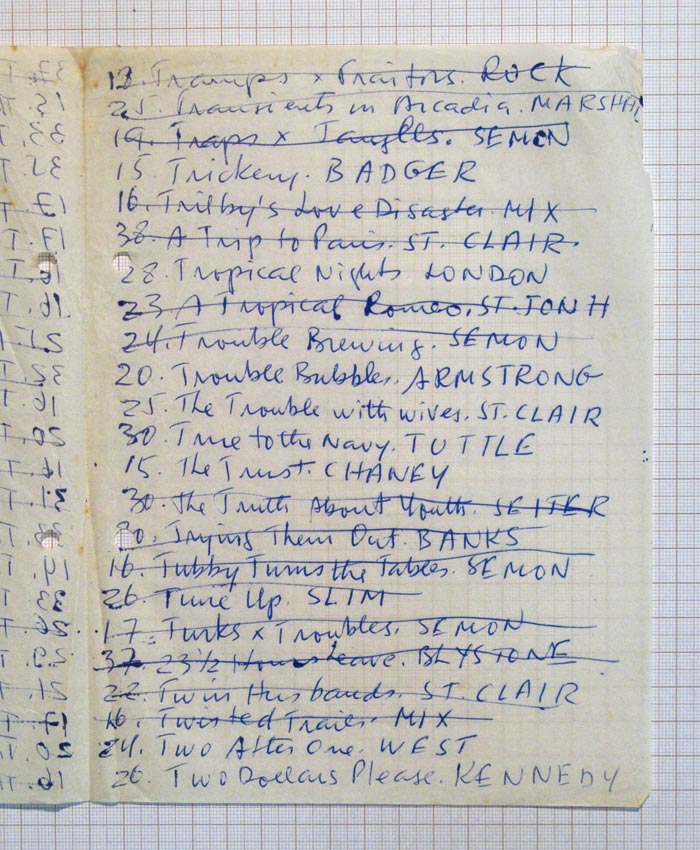 18. Tramps x Traitors. ROCK
25. Transients in Arcadia. MARSHAL
19. Traps x Tangles. SEMON
15. Trickery. BADGER
16. Trilby's Love Disaster. MIX
38. A Trip to Paris. ST. CLAIR.
28. Tropical Nights. LONDON
23. A Tropical Romeo. ST. JONH
24. Trouble Brewing. SEMON
20. Trouble Bubbles. ARMSTRONG
25. The Trouble with wives. ST. CLAIR
30. True to the Navy. TUTTLE
15. The Trust. CHANEY
30. The Truth About Youth. SEITER
30. Trying Them Out. BANKS
16. Tubby Turns the Tables. SEMON
26. Tune Up. SLIM
17. Turks x Troubles. SEMON
37. 23½ Hours Leave. BLYSTONE
22. Twin Husbands. ST. CLAIR
16. Twisted Trails. MIX
24. Two After One. WEST
26. Two Dollars Please. KENNEDY